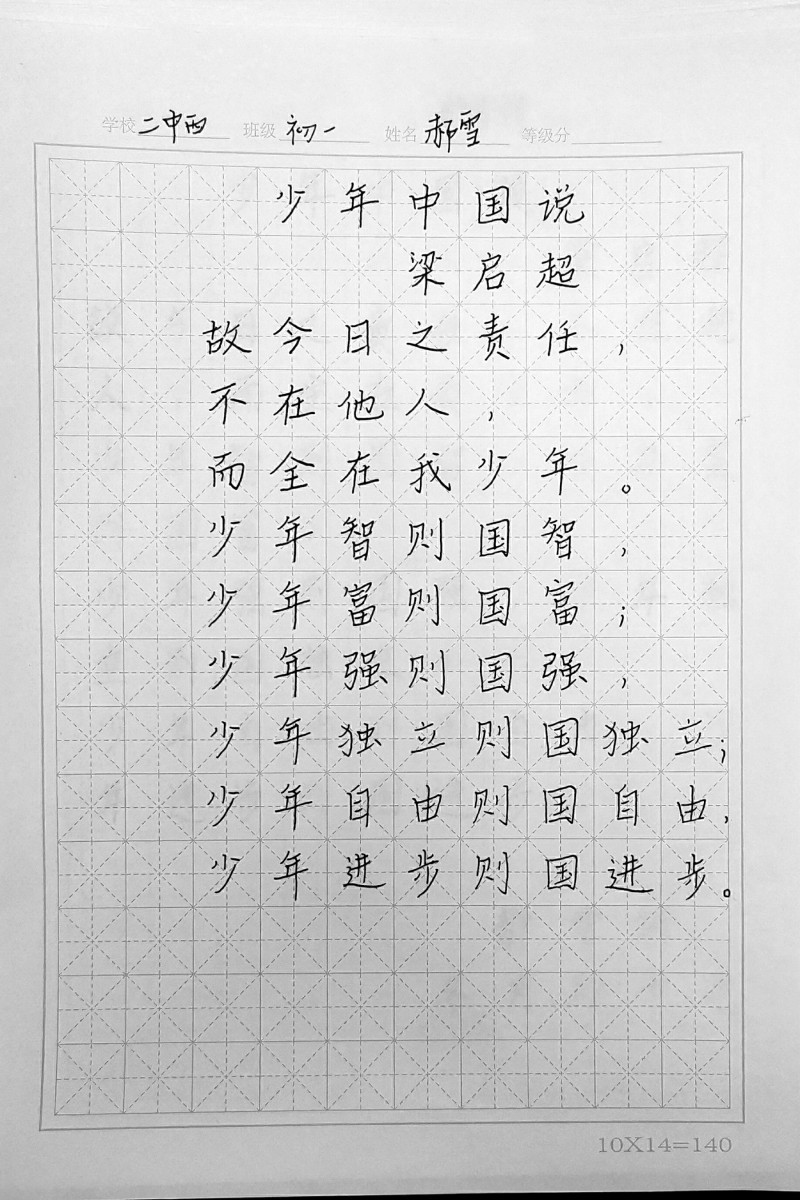 学校 二中西 班级 初一 姓名 郝雪 等级分
少年中国说
梁启超
故今日之责任，
不在他人，
而全在我少年。
少年智则国智，
少年富则国富；
少年强则国强，
少年独立则国独立；
少年自由则国自由，
少年进步则国进步。
10X14=140